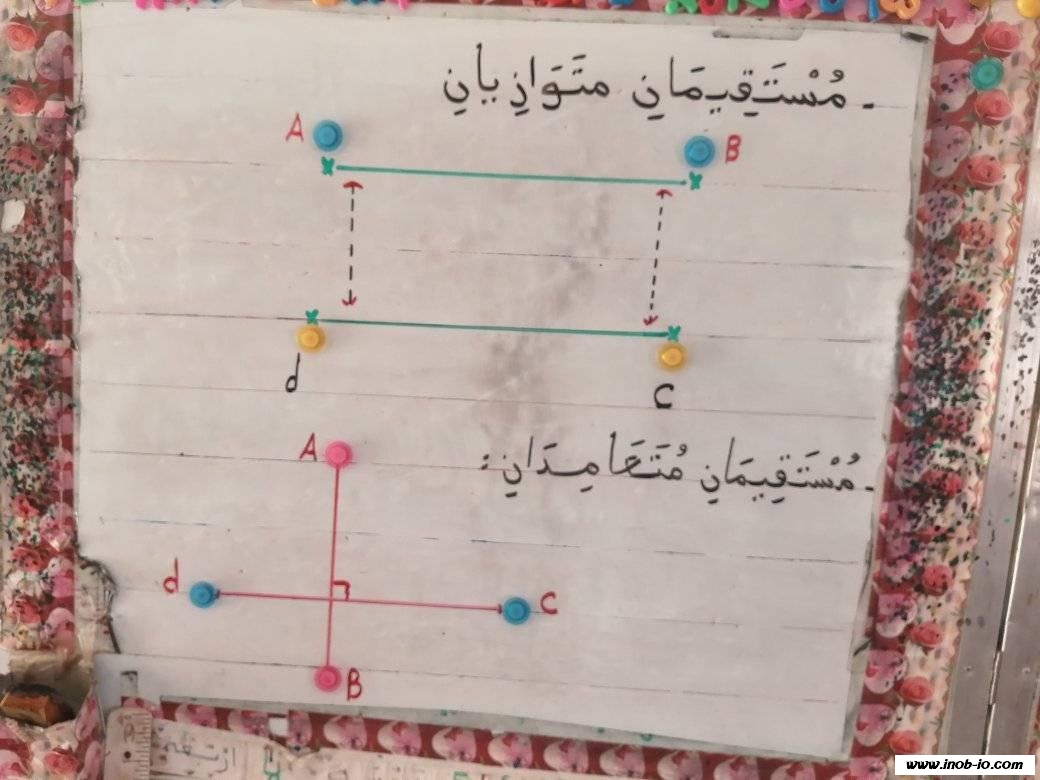 - مُسْتَقِيمَانِ متَوَازِيانِ
A B
d C
- مُسْتَقِيمَانِ مُتَعَامِدَانِ :
A
d C
B
www.inob-io.com